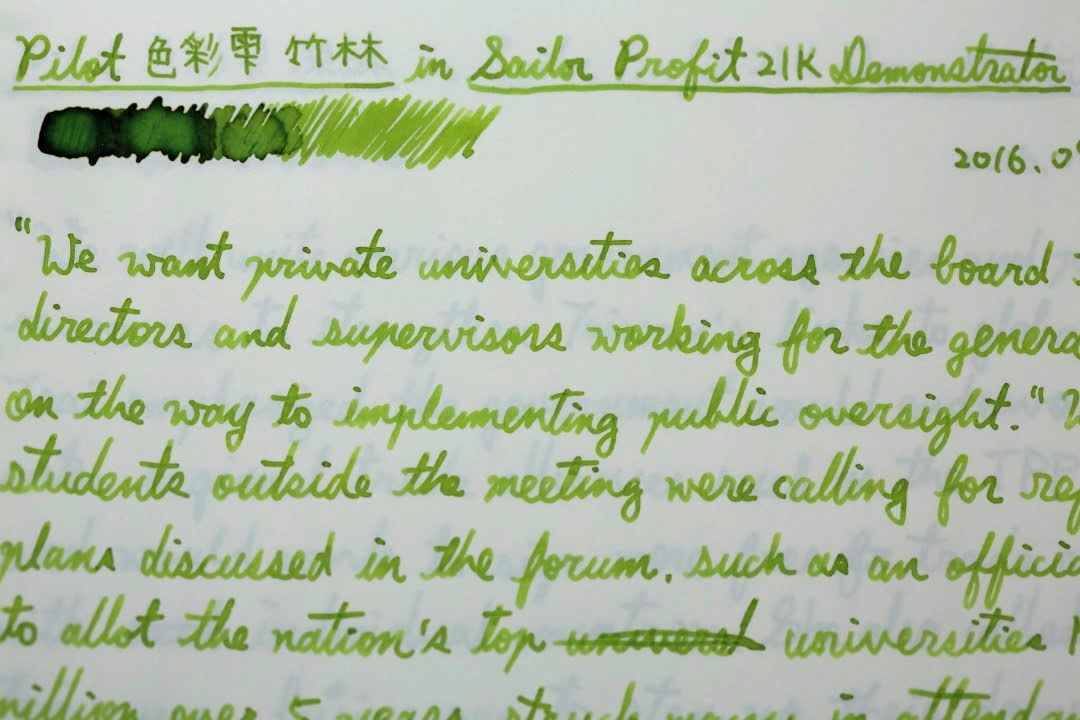 Pilot 色彩雫 竹林 in Sailor Profit 21K Demonstrator
2016.0
"We want private universities across the board
directors and supervisors working for the genera
on the way to implementing public oversight."
students outside the meeting were calling for rep
plans discussed in the forum, such as an officia
to allot the nation's top universities
million over 5 years struck many in attenda